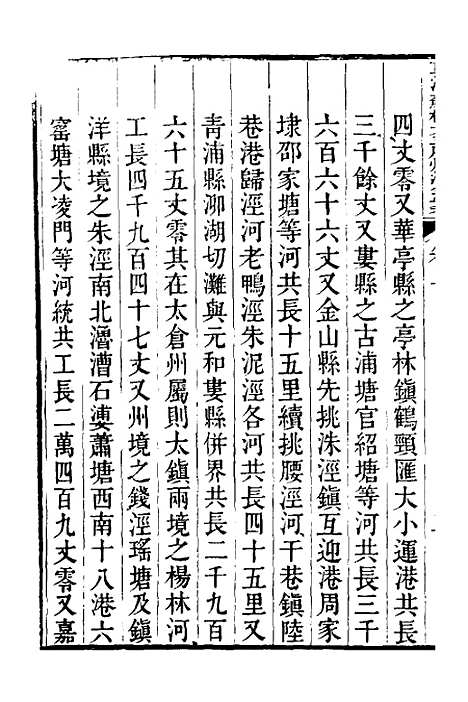 四丈零又華亭縣之亭林鎮鶴頸匯大小運港共長
三千餘丈又婁縣之古浦塘官紹塘等河共長三千
六百六十六丈又金山縣先挑洙涇鎮互迎港周家
埭邵家塘等河共長十五里續挑腰涇河干巷鎮陸
巷港歸涇河老鴨涇朱泥涇各河共長四十五里又
青浦縣泖湖切灘與元和婁縣併界共長二千九百
六十五丈零其在太倉州屬則太鎮兩境之楊林河
工長四千九百四十七丈又州境之錢涇瑤塘及鎮
洋縣境之朱涇南北澛漕石婁蕭塘西南十八港六
窑塘大凌門等河統共工長二萬四百九丈零又嘉